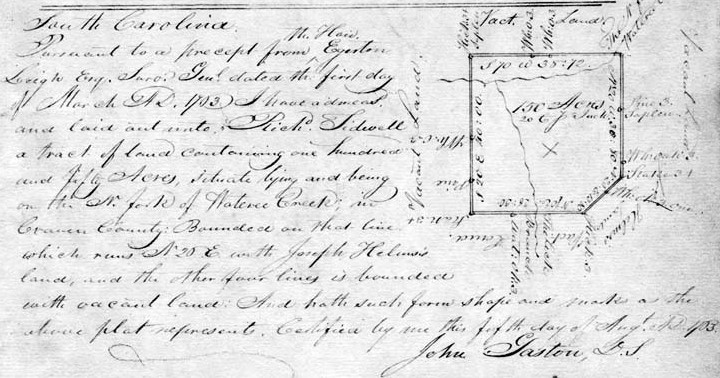 South Carolina.
Pursuant to a precept from the Hon. Egerton
Leigh Esq. Survr. Genl. dated the first day
of March A.D. 1703 I have admeas.
and laid out unto, Richd. Sidwell
a tract of land containing one hundred
and fifty Acres, situate lying and being
on the N. fork of Wateree Creek; in
Craven County; Bounded on that line
which runs N 20 E with Joseph Helms's
land, and the other four lines is bounded
with vacant land: And hath such form shape and marks as the
above plat represents. Certified by me this fifth day of Augt. A.D. 1703
John Gaston, D.S.
Vact. Land
S 70 W 35:72.
150 Acres
S 20 E 40:00.
Vacant Land
Pine
Vacant Land
Pine 3.
Vact.
Land
Helms's